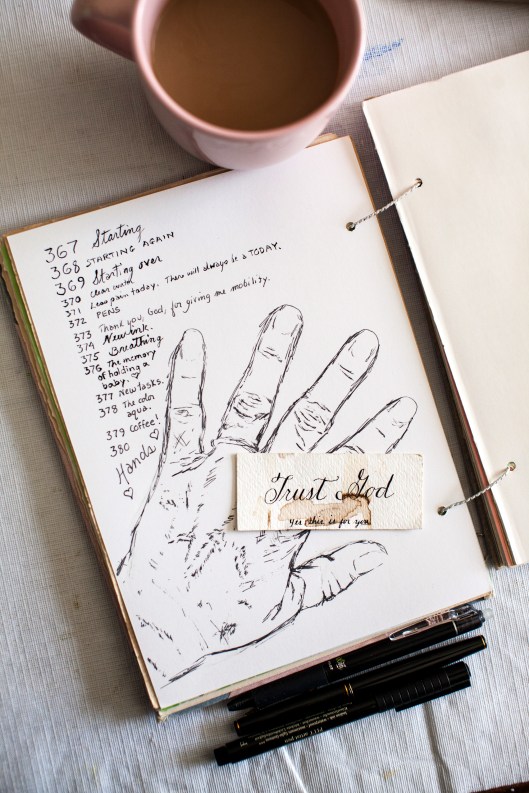 367 Starting
368 STARTING AGAIN
369 Starting over
370 clear water
371 Less pain today. There will always be a TODAY.
372 PENS
373 Thank you, God, for giving me mobility.
374 New ink.
375 Breathing.
376 The memory
of holding a
baby. ♡
377 New tasks.
378 The color
aqua.
379 Coffee!
380 ♡
Hands
♡
Trust God
yes, this is for you
PITT artist pen